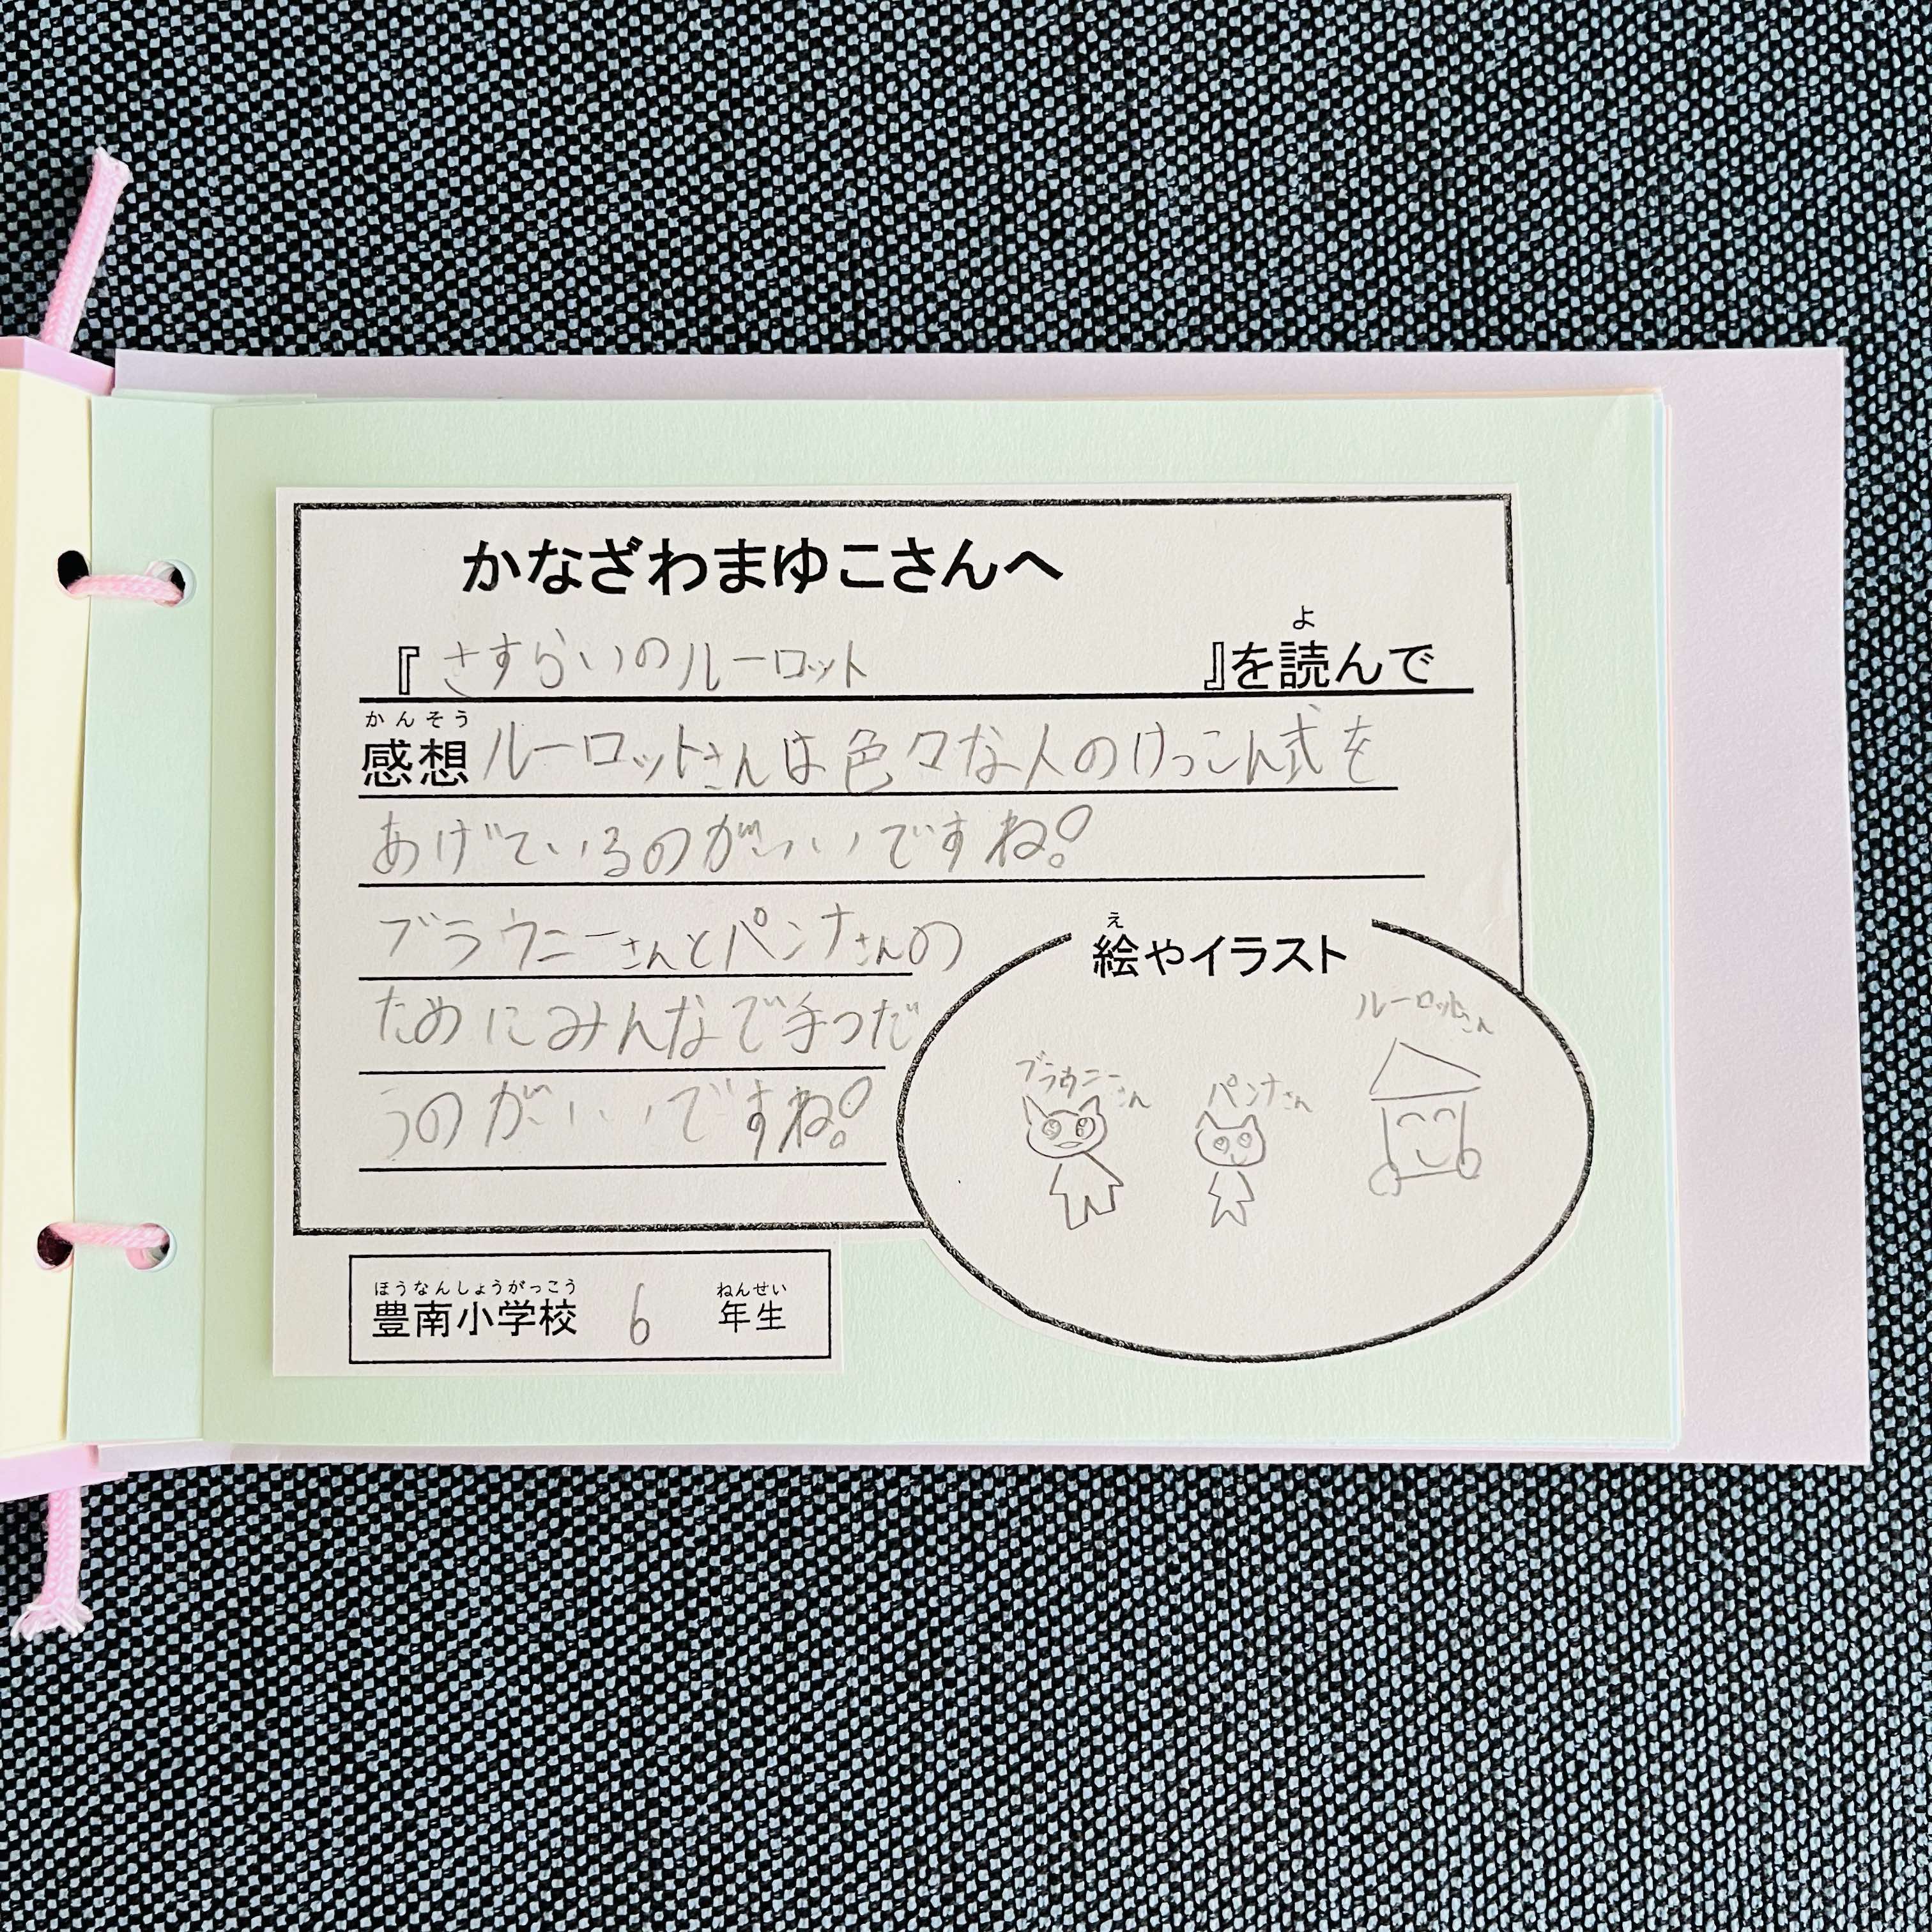 かなざわまゆこさんへ
よ
『さすらいのルーロット』を読んで
かんそう
感想 ルーロットさんは色々な人のけっこん式を
あげているのがいいですね!
ブラウニーさんとパンナさんの
ためにみんなで手つだ
うのがいいですね!
え
絵やイラスト
ルーロットさん
ブラウニーさん
パンナさん
ほうなんしょうがっこう ねんせい
豊南小学校 6 年生